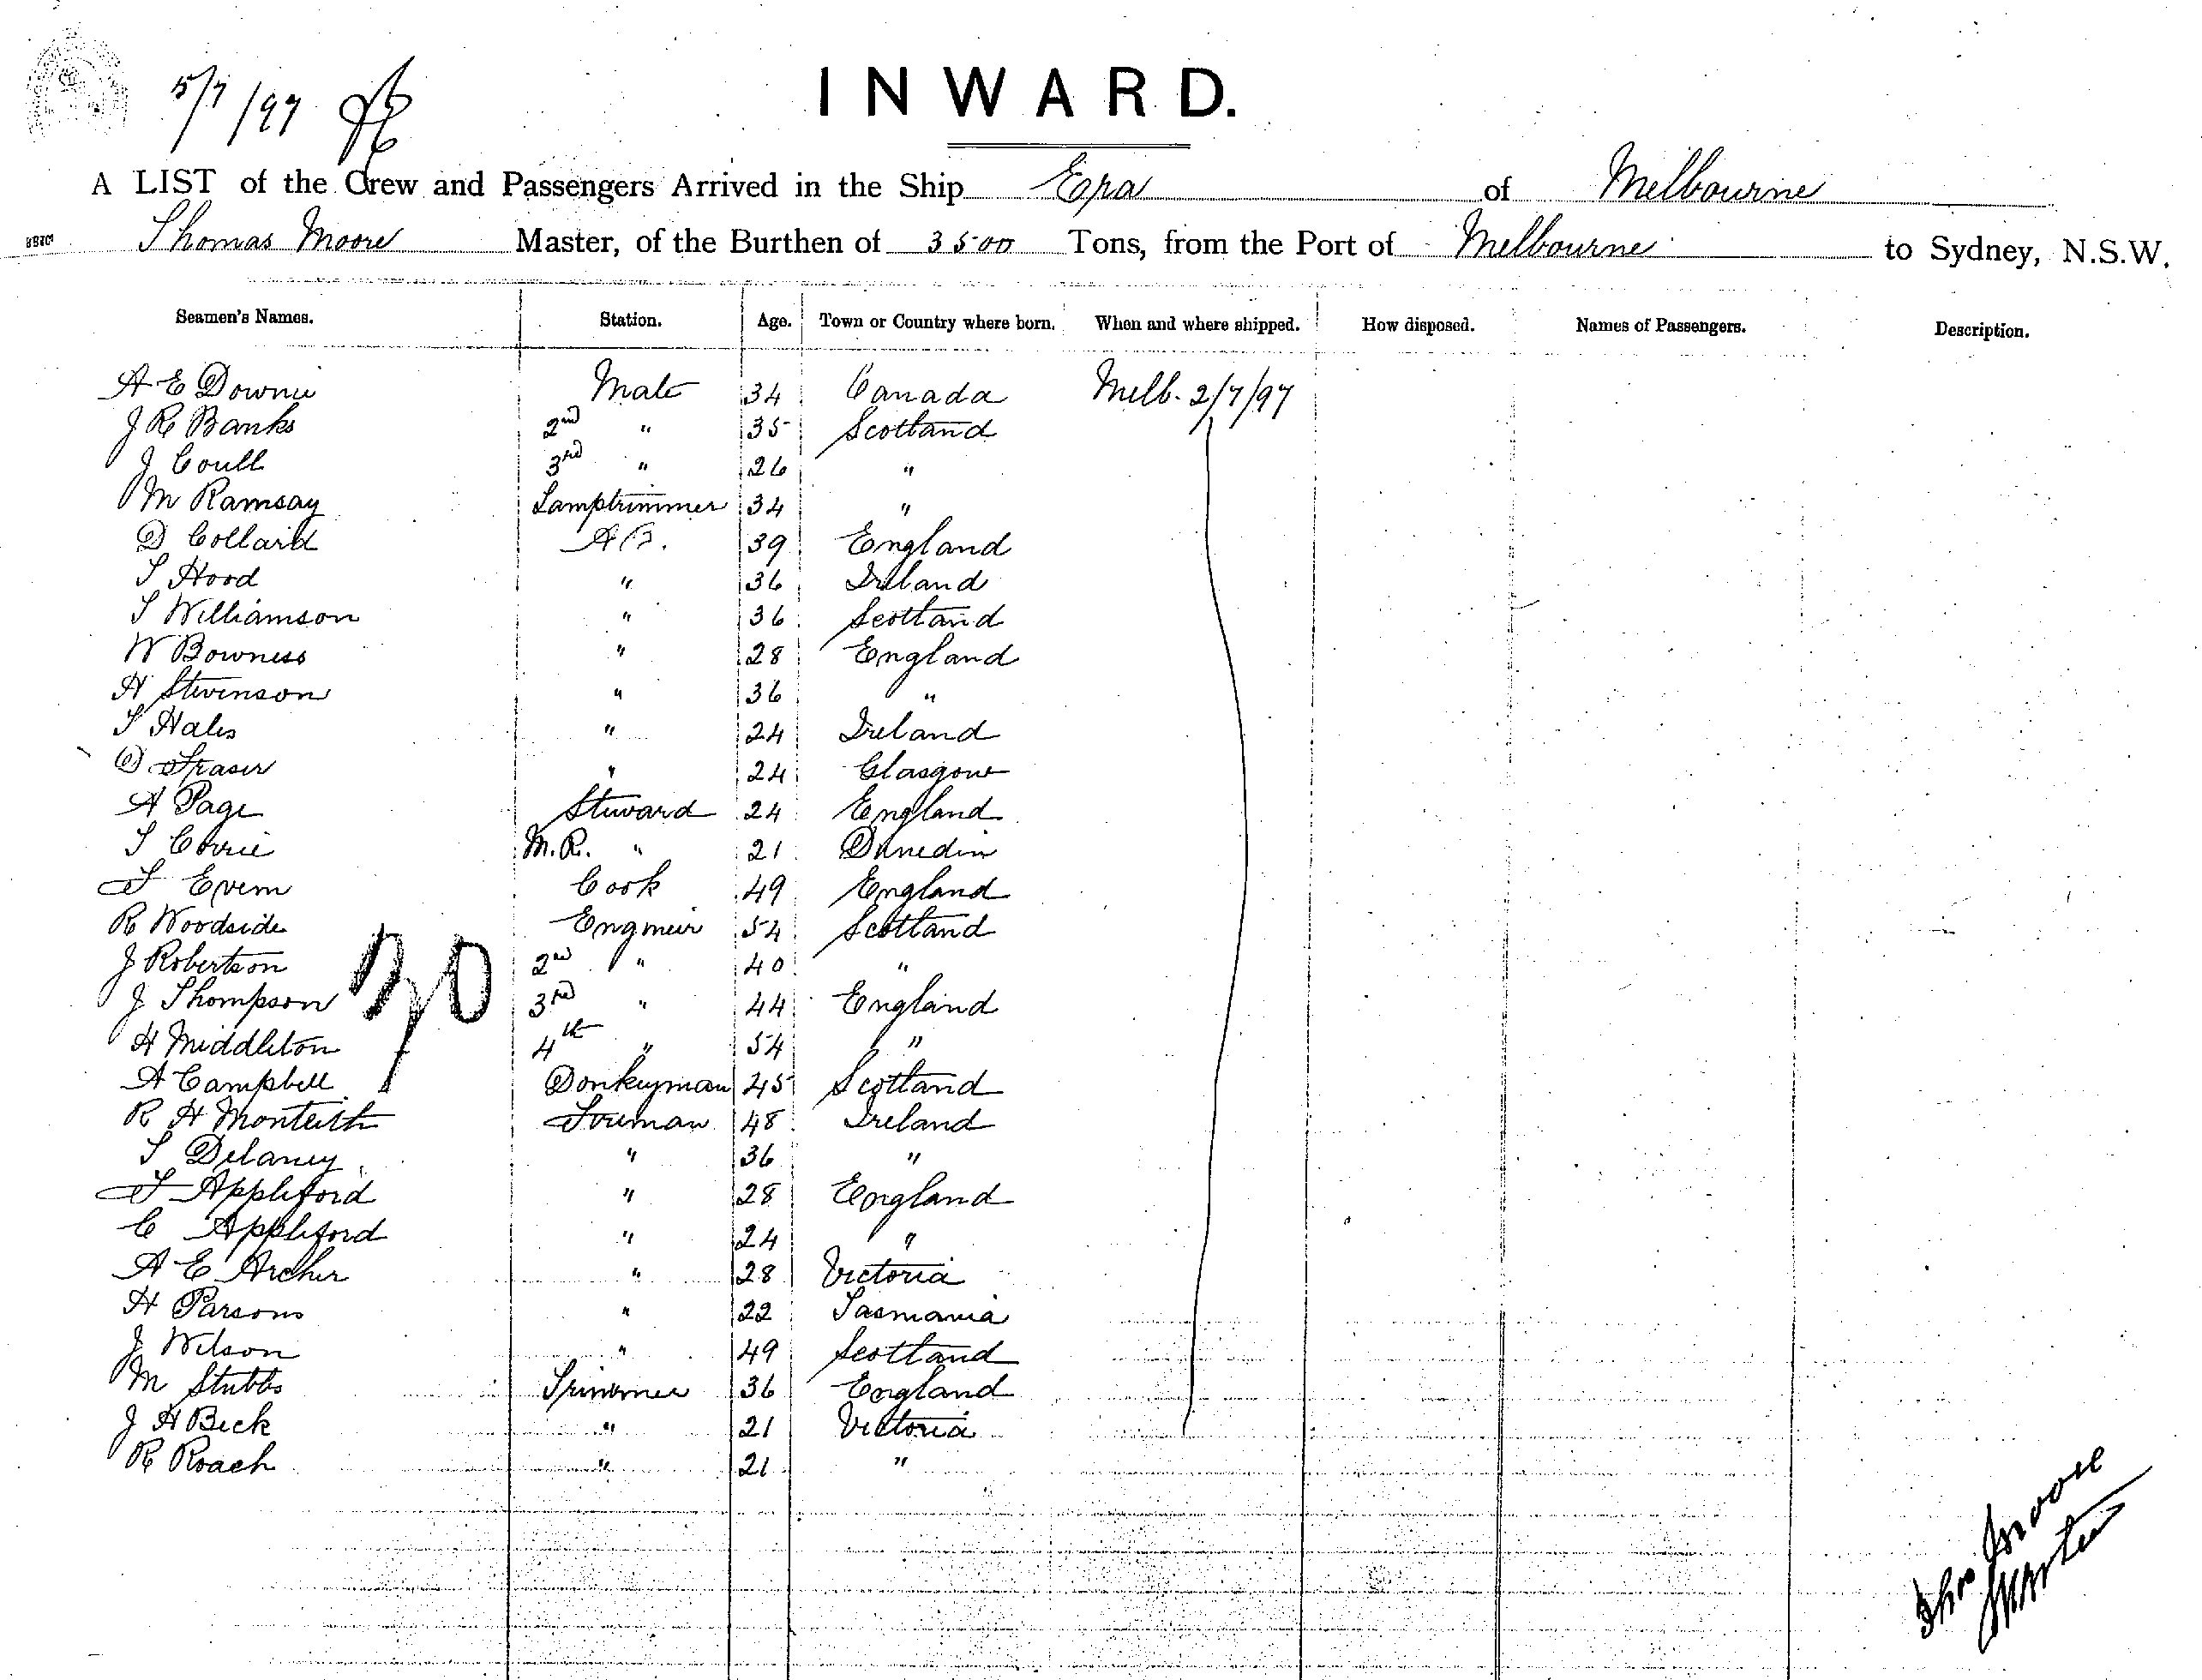 5/7/97
INWARD.
A LIST of the Crew and Passengers Arrived in the Ship Era of Melbourne
Thomas Moore Master, of the Burthen of 3500 Tons, from the Port of Melbourne to Sydney, N.S.W.
Seamen's Names. Station. Age. Town or Country where born. When and where shipped. How disposed. Names of Passengers. Description.
A E Downie Mate 34 Canada Melb. 2/7/97
J R Banks 2nd " 35 Scotland
J Coull 3rd " 26 "
M Ramsay Lamptrimmer 34 "
D Collard AB. 39 England
T Hood " 36 Ireland
T Williamson " 36 Scotland
W Bowness " 28 England
H Stevenson " 36 "
T Hales " 24 Ireland
D Fraser " 24 Glasgow
A Page Steward 24 England
T Corrie M.R. " 21 Dunedin
F Evem Cook 49 England
R Woodside Engineer 54 Scotland
J Robertson 2nd " 40 "
J Thompson 3rd " 44 England
H Middleton 4th " 54 "
A Campbell Donkeyman 45 Scotland
R H Monteith Fireman 48 Ireland
T Delaney " 36 "
F Appleford " 28 England
C Appleford " 24 "
A E Archer " 28 Victoria
H Parsons " 22 Tasmania
J Wilson " 49 Scotland
M Stubbs Trimmer 36 England
J H Beck " 21 Victoria
R Roach " 21 "
Thos Moore
Master